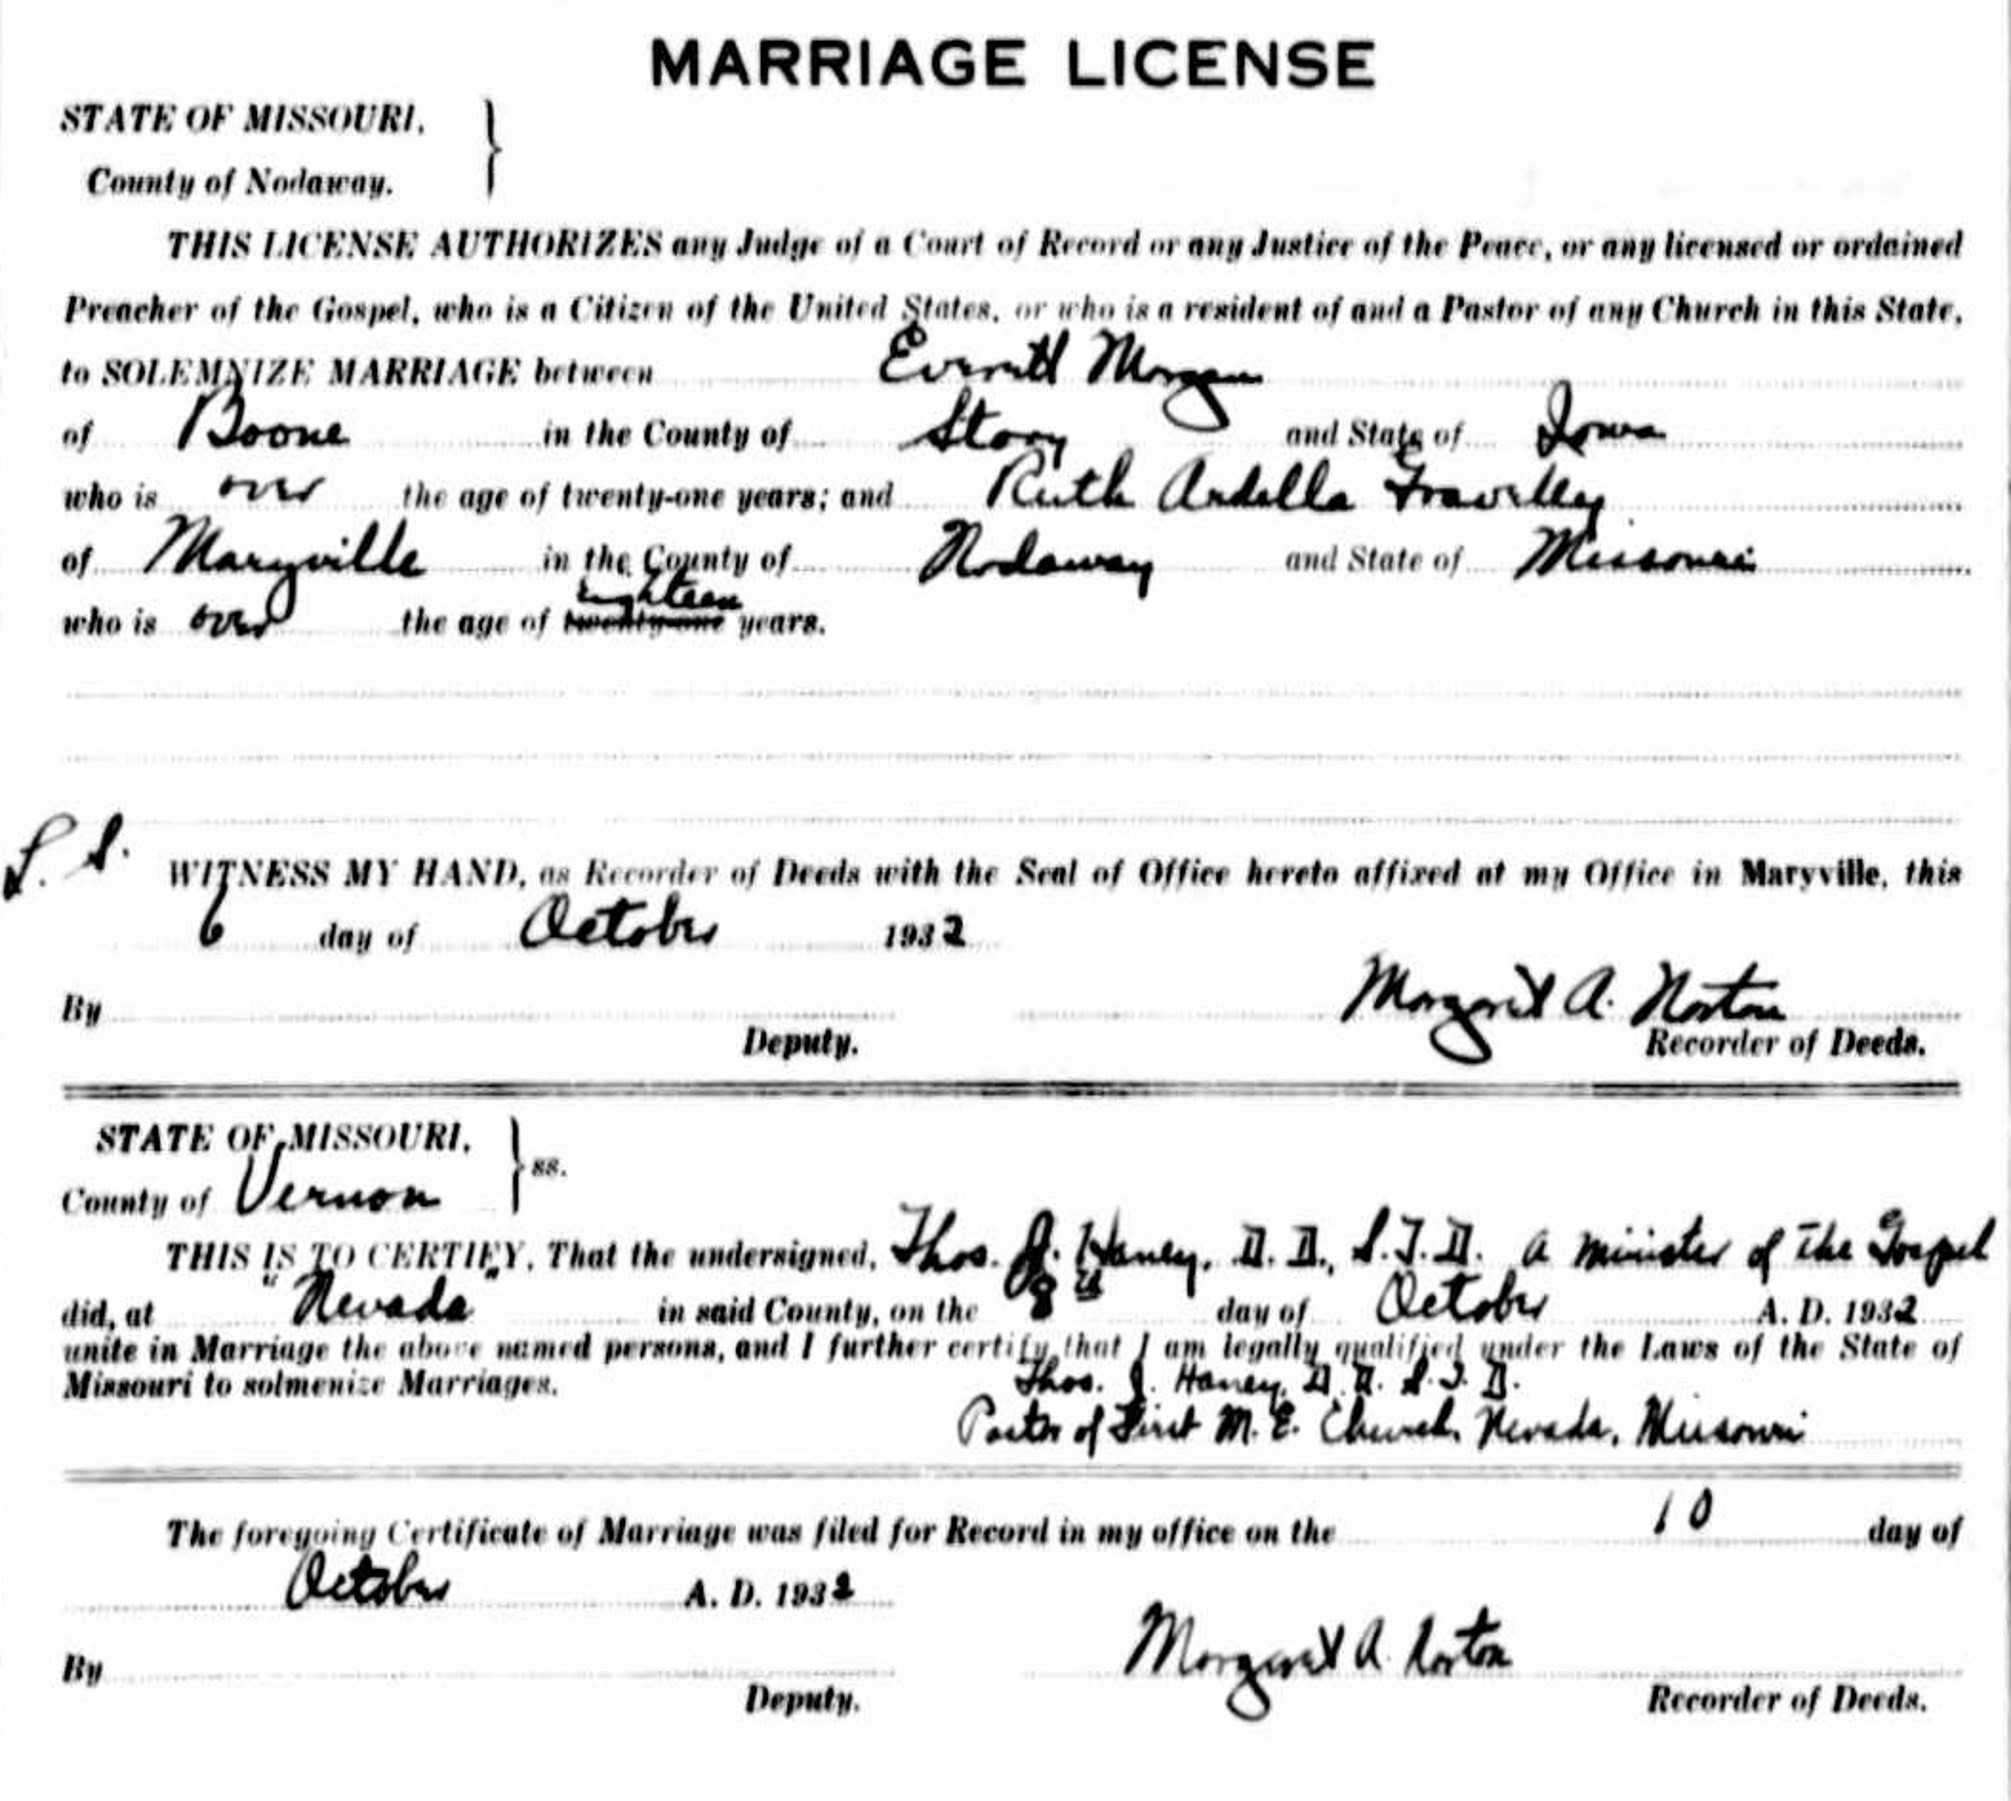 MARRIAGE LICENSE
STATE OF MISSOURI,
County of Nodaway.
THIS LICENSE AUTHORIZES any Judge of a Court of Record or any Justice of the Peace, or any licensed or ordained
Preacher of the Gospel, who is a Citizen of the United States, or who is a resident of and a Pastor of any Church in this State,
to SOLEMNIZE MARRIAGE between Everett Morgan
of Boone in the County of Story and State of Iowa
who is over the age of twenty-one years; and Ruth Ardella Travelley
of Maryville in the County of Nodaway and State of Missouri
Eighteen
who is over the age of twenty-one years.
L. S.
WITNESS MY HAND, as Recorder of Deeds with the Seal of Office hereto affixed at my Office in Maryville, this
6 day of October 1932
By Margaret A. Norton
Deputy. Recorder of Deeds.
STATE OF MISSOURI,
County of Vernon ss.
THIS IS TO CERTIFY, That the undersigned, Thos. J. Haney, D. D., S.T.D. a minister of the Gospel
did, at "Nevada" in said County, on the 8th day of October A. D. 1932
unite in Marriage the above named persons, and I further certify that I am legally qualified under the Laws of the State of
Missouri to solmenize Marriages. Thos. J. Haney, D. D. S. T. D.
Pastor of First M. E. Church, Nevada, Missouri
The foregoing Certificate of Marriage was filed for Record in my office on the 10 day of
October A. D. 1932
By Margaret A. Norton
Deputy. Recorder of Deeds.